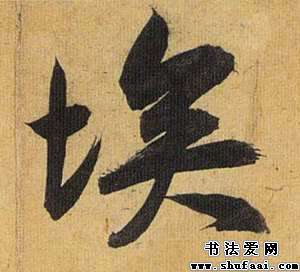 埃
书法爱网
www.shufaai.com